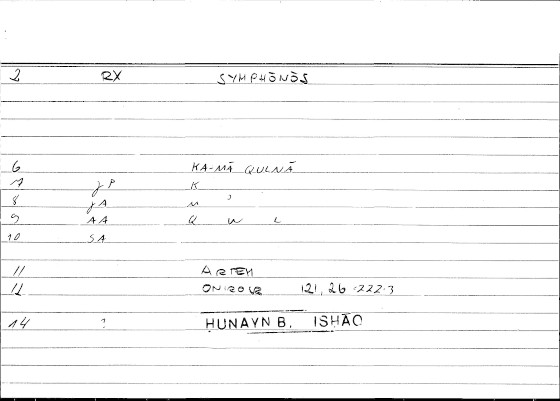 2 RX SYMPHŌNŌS
6 KA-MĀ QULNĀ
7 JP K
8 JA M ʾ
9 AA Q W L
10 SA
11 ARTEM
12 ONIROCR 121,26 -222.3
14 ? ḤUNAYN B. ISḤĀQ